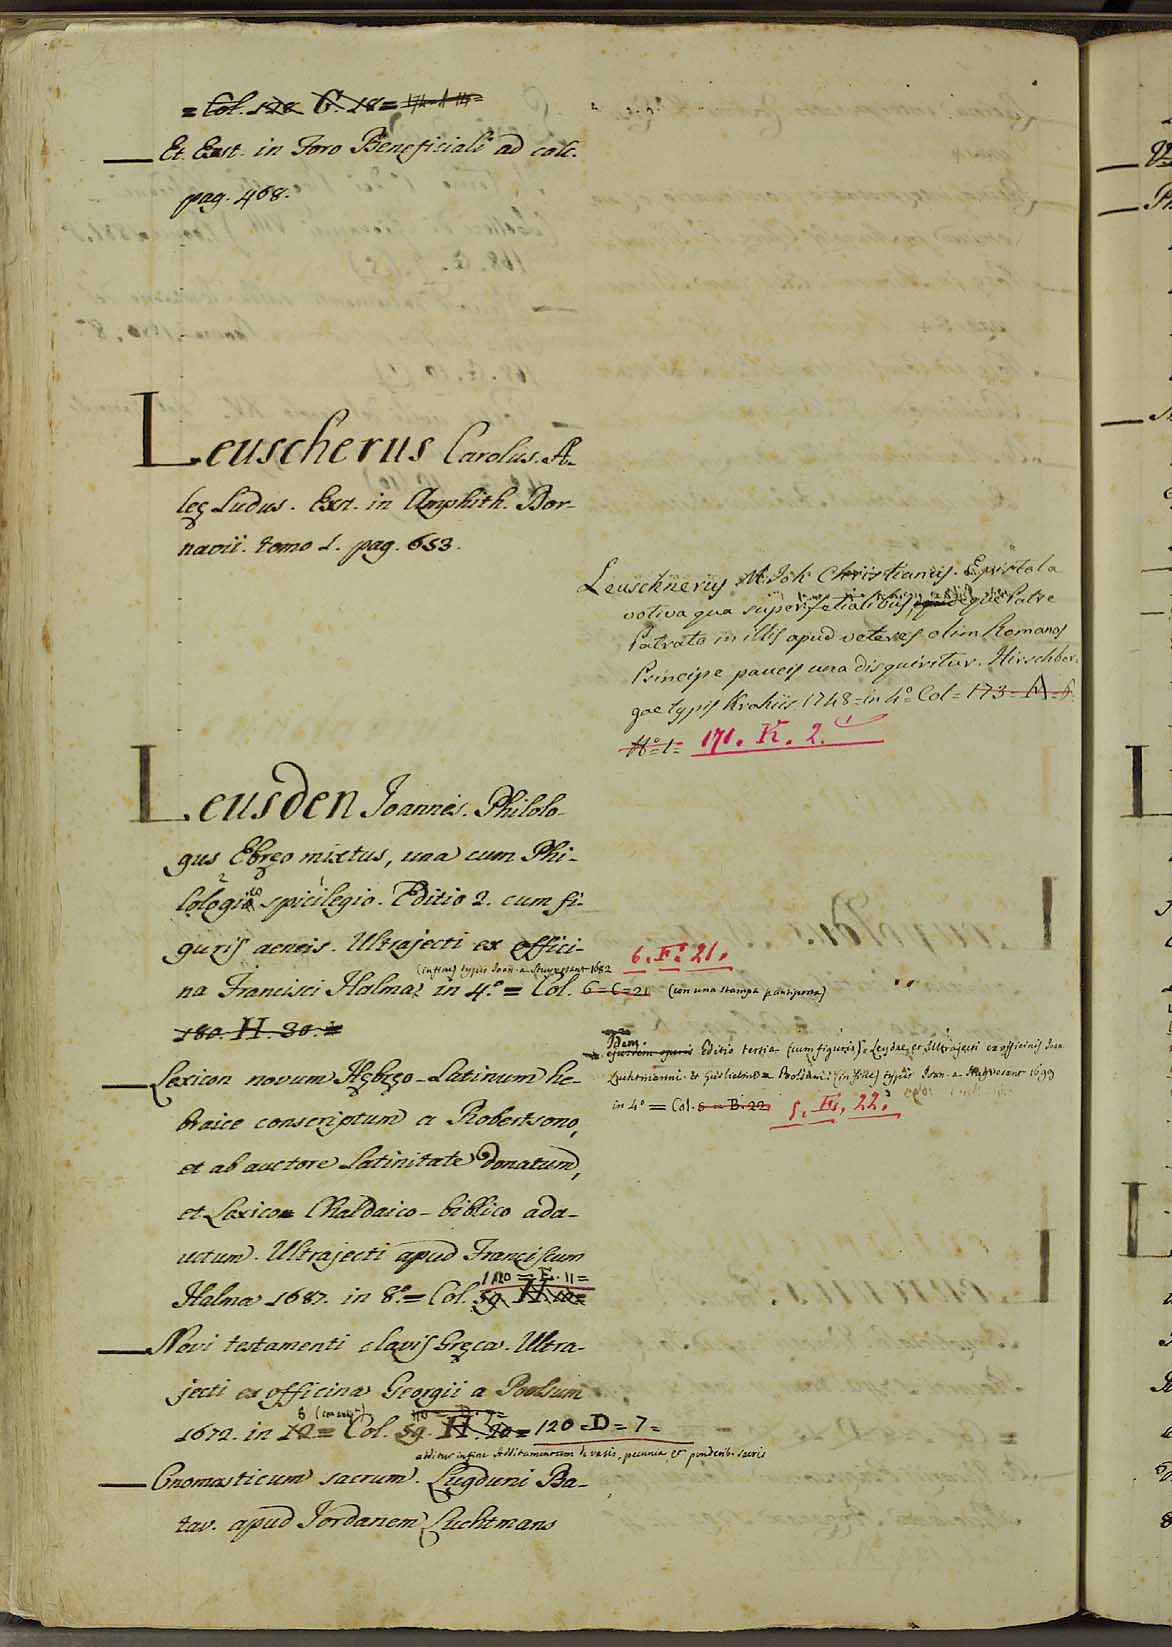 = Col. 128 G. 18 =
— Et. Exst. in Foro Beneficiali ad calc.
pag. 468.
Leuscherus Carolus. A-
leę Ludus. Exst. in Amphith. Dor-
navii. tomo 1. pag. 653.
Leuschnerus M. Joh Christianus. Epistola
votiva qua super fetialibus, eque Patre
Patrato in illis apud veteres olim Romanos
Principe paucis una disquiritur. Hirschber-
gae typis Krahiis 1748 = in 4.º Col = 173 = A = 6.
Nº = 1 = 171. K. 2.
Leusden Joannes. Philolo-
gus Ebręo mixtus, una cum Phi-
lologico spicilegio. Editio 2. cum fi-
guris aeneis. Ultrajecti ex offici-
6. F. 21.
(in fine) typis Joan. a Stuyvesant 1682
na Francisci Halma, in 4.º = Col. 6 = C = 21 (con una stampa p antiporta)
180. H. 30. =
Idem.
ejusdem operis Editio tertia (cum figuris) = Leydae, et Ultrajecti ex officinis Joan
Luchtmanni. et Guilielmi a Poolsum: (in fine) typis Joan. a Stuyvesant 1699
in 4º = Col. 6 = B. 22. 5. F. 22.
— Lexicon novum Hębręo-Latinum he-
braice conscriptum a Robertsono,
et ab auctore Latinitate donatum,
et Lexicon Chaldaico-biblico ada-
uctum. Ultrajecti apud Franciscum
120 = E. 11 =
Halma 1687. in 8.º = Col. 59. H.
— Novi testamenti clavis Gręca. Ultra-
jecti ex officina Georgii a Poolsum
8
1672. in 12 = Col. 59. H. 20 = 120 = D = 7 =
additur in fine Additamentum de vasis, pecunia, et ponderib. sacris
— Onomasticum sacrum. Lugduni Ba-
tav. apud Jordanem Luchtmans